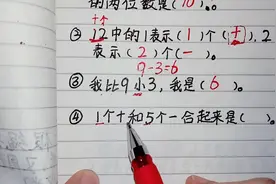 的两位数是(10)。
十个
② 12中的1表示(1)个(十),2
表示(2)个(一)。
9-3=6
③ 我比9小3,我是(6)。
④ 1个十和5个一合起来是( )。